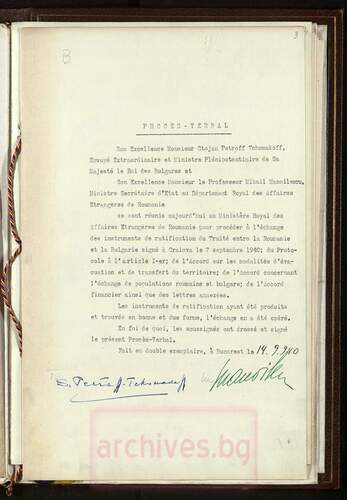 3
B
PROCÈS-VERBAL
Son Excellence Monsieur Stojan Petroff Tchomakoff,
Envoyé Extraordinaire et Ministre Plénipotentiaire de Sa
Majesté le Roi des Bulgares et
Son Excellence Monsieur le Professeur Mihail Manoilesco,
Ministre Secrétaire d'Etat au Département Royal des Affaires
Etrangères de Roumanie
se sont réunis aujourd'hui au Ministère Royal des
Affaires Etrangères de Roumanie pour procéder à l'échange
des instruments de ratification du Traité entre la Roumanie
et la Bulgarie signé à Craiova le 7 septembre 1940; du Proto-
cole à l'article I-er; de l'Accord sur les modalités d'éva-
cuation et de transfert du territoire; de l'Accord concernant
l'échange de populations roumaine et bulgare; de l'Accord
financier ainsi que des lettres annexées.
Les instruments de ratification ayant été produits
et trouvés en bonne et due forme, l'échange en a été opéré.
En foi de quoi, les soussignés ont dressé et signé
le présent Procès-Verbal.
Fait en double exemplaire, à Bucarest le 14.9.940
S. Petroff-Tchomakoff
Manoilesco
archives.bg